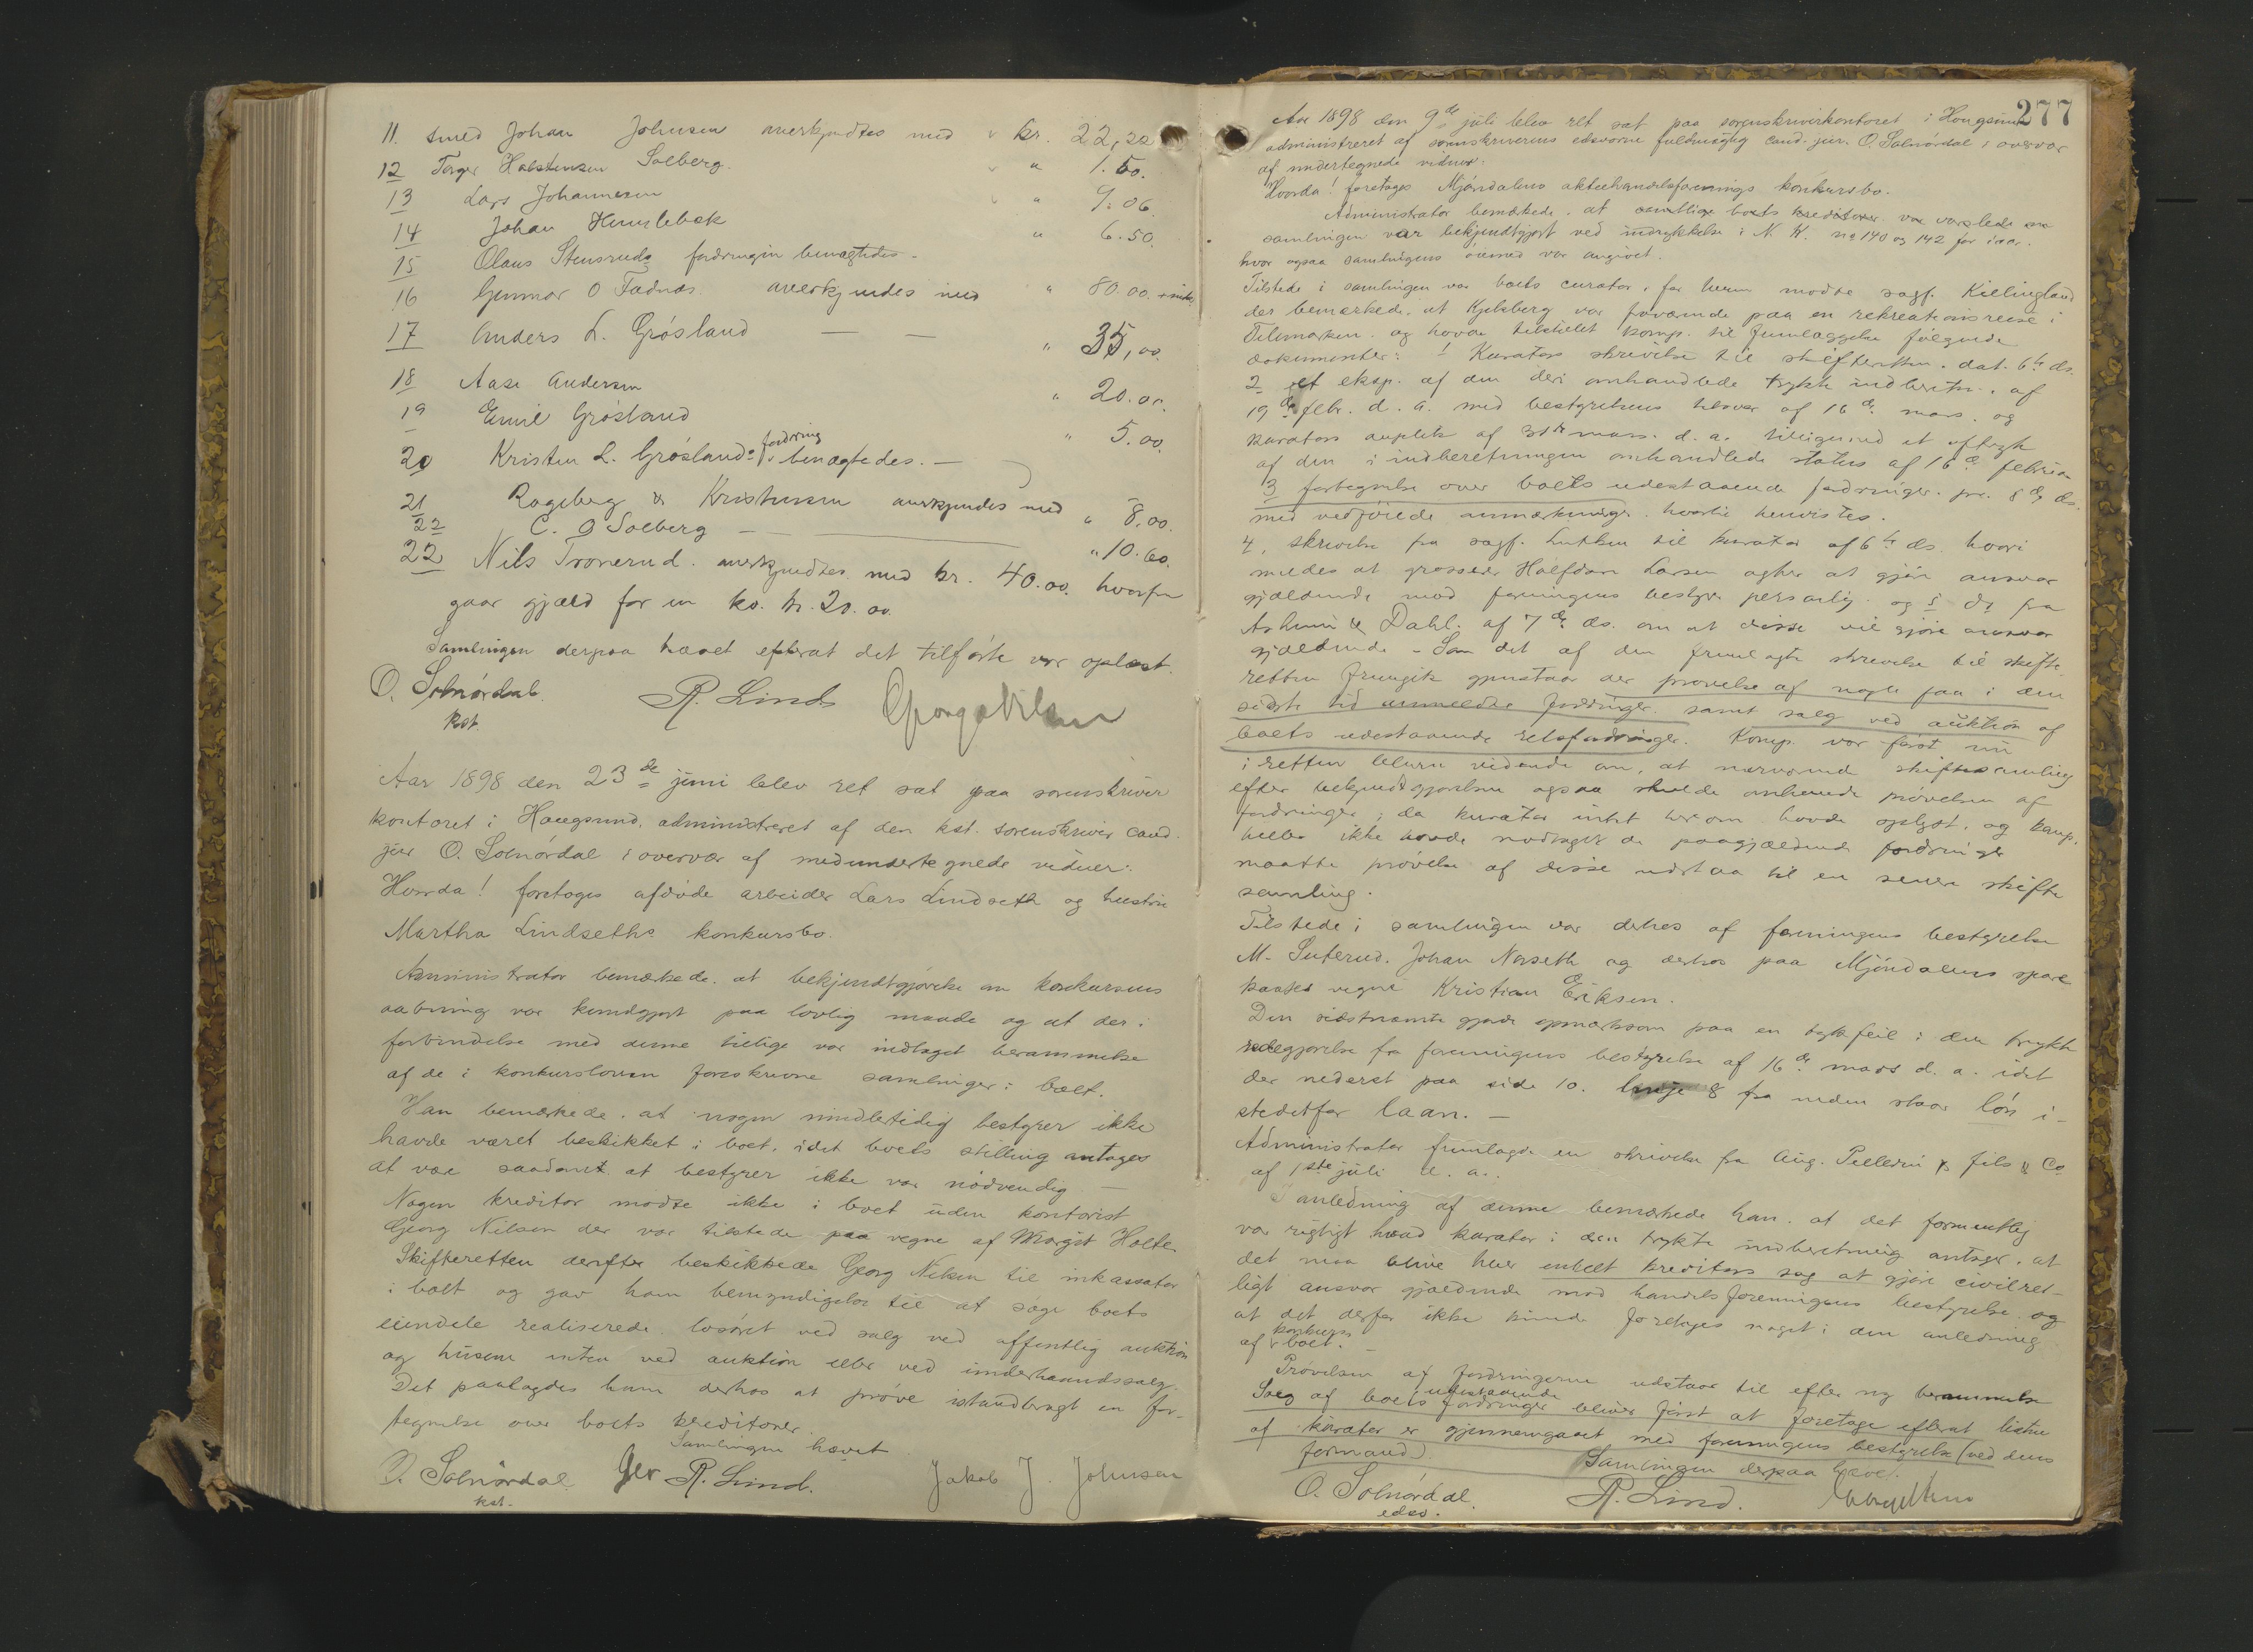 11. Smed Johan Johnsen anerkjendtes med " kr. 22,22
12 Torger Halstensen Solberg. " 1.50.
13 Lars Johannesen " 9.06.
14 Johan Humlebæk " 6.50.
15 Olaus Stensruds fordringen benægtedes.
16 Gunnar O Fadnæs anerkjendes med " 80.00
17 Anders L. Grøsland — — " 35,00.
18 Aase Andersen " 20.00.
19 Emil Grøsland " 5.00.
20 Kristen L. Grøslands fordring benægtedes. —
21 Rogeberg & Kristensen anerkjendes med " 8,00.
22 C. O Solberg — — " 10.60.
22 Nils Tronerud. anerkjendtes med kr. 40.00. hvorfra
gaar gjæld for en ko. kr. 20.00
Samlingen derpaa hævet efterat det tilførte var oplæst.
O. Solnørdal R. Lind Georg Nilsen
kst.
Aar 1898 den 23de juni blev ret sat paa sorenskriver
kontoret i Hougsund. administreret af den kst. sorenskriver cand.
jur O. Solnørdal i overvær af medundertegnede vidner:
Hvorda! foretoges afdøde arbeider Lars Lindseth og hustru
Martha Lindseths konkursbo.
Administrator bemærkede. at bekjendtgjørelse om konkursens
aabning var kundgjort paa lovlig maade og at der i
forbindelse med denne tillige var indtaget berammelse
af de i konkursloven foreskrevne samlinger i boet.
Han bemærkede. at nogen midlertidig bestyrer ikke
havde været beskikket i boet, idet boets stilling antages
at være saadant at bestyrer ikke var nødvendig —
Nogen kreditor mødte ikke i boet uden kontorist
Georg Nilsen der var tilstede paa vegne af Margit Holte.
Skifteretten derefter beskikkede Georg Nilsen til inkassator
i boet og gav ham bemyndigelse til at søge boets
eiendele realiserede. løsøret ved salg ved offentlig auktion
og husene enten ved auktion eller ved underhaandssalg.
Det paalagdes ham derhos at prøve istandbragt en for-
tegnelse over boets kreditorer.
Samlingen hævet
O. Solnørdal R. Lind. Jakob J. Johnsen
kst.
277
Aar 1898 den 9de juli blev ret sat paa sorenskriverkontoret i Hougsund
administreret af sorenskriverens edsvorne fuldmægtig cand. jur. O. Solnørdal i overvær
af undertegnede vidner:
Hvorda! foretoges Mjøndalens aktiehandelsforenings konkursbo.
Administrator bemærkede. at samtlige boets kreditorer var varslede om
samlingen var bekjendtgjort ved indrykkelse i N. K. no 140 og 142 for iaar.
hvor ogsaa samlingens øiemed var angivet.
Tilstede i samlingen var boets curator. for hvem mødte sagf. Killingland
der bemærkede. at Kjelsberg var fraværende paa en rekreationsreise i
Telemarken. og havde tilstillet komp. til fremlæggelse følgende
dokumenter: 1 Kurators skrivelse til skifteretten. dat. 6te ds.
2 et eksp. af den deri omhandlede trykte indberetn. af
19de febr. d. a. med bestyrelsens tilsvar af 16de mars. og
kurators replik af 31te mars. d. a. tilligemed et aftryk
af den i indberetningen omhandlede status af 16de februar
3 fortegnelse over boets udestaaende fordringer. pr. 8de ds.
med vedføiede anmærkninger. hvortil henvistes.
4, skrivelse fra sagf. Lütken til kurator af 6te ds. hvori
meldes at grosserer Halfdan Larsen agter at gjøre ansvar
gjældende mod foreningens bestyr. personlig. og 5 do fra
Ashum & Dahl. af 7de ds. om at disse vil gjøre ansvar
gjældende – Som det af den fremlagte skrivelse til skifte-
retten fremgik gjenstaar der prøvelse af nogle paa i den
sidste tid anmeldte fordringer. samt salg ved auktion af
boets udestaaende restfordringer. Komp. var først nu
i retten bleven vidende om, at nærværende skiftesamling
efter bekjendtgjørelsen ogsaa skulde omhandle prøvelsen af
fordringer, da kurator intet herom havde oplyst. og komp.
heller ikke havde modtaget de paagjældende fordringer
maatte prøvelse af disse udstaa til en senere skifte
samling.
Tilstede i samlingen var derhos af foreningens bestyrelse
M. Suterud. Johan Næseth og derhos paa Mjøndalens spare
kasses vegne Kristian Eriksen.
Den sidstnævnte gjorde opmærksom paa en trykfeil i den trykte
redegjørelse fra foreningens bestyrelse af 16de mars d. a. idet
der nederst paa side 10. linje 8 fra neden staar løn i-
stedetfor laan. —
Administrator fremlagde en skrivelse fra Aug. Pellerin fils & Co
af 1ste juli d. a..
I anledning af denne bemærkede han. at det formentlig
var rigtigt hvad kurator i den trykte indberetning antager, at
det maa blive hver enkelt kreditors sag at gjøre civilret-
ligt ansvar gjældende mod handelsforeningens bestyrelse og
at det derfor ikke kunde foretages noget i den anledning
af konkursboet. —
Prøvelsen af fordringerne udstaar til efter ny berammelse
Salg af boets udestaaende fordringer bliver først at foretage efterat listen
af kurator er gjennemgaaet med foreningens bestyrelse (ved dens
formand). Samlingen derpaa hævet.
O. Solnørdal. R. Lind.
edsv.